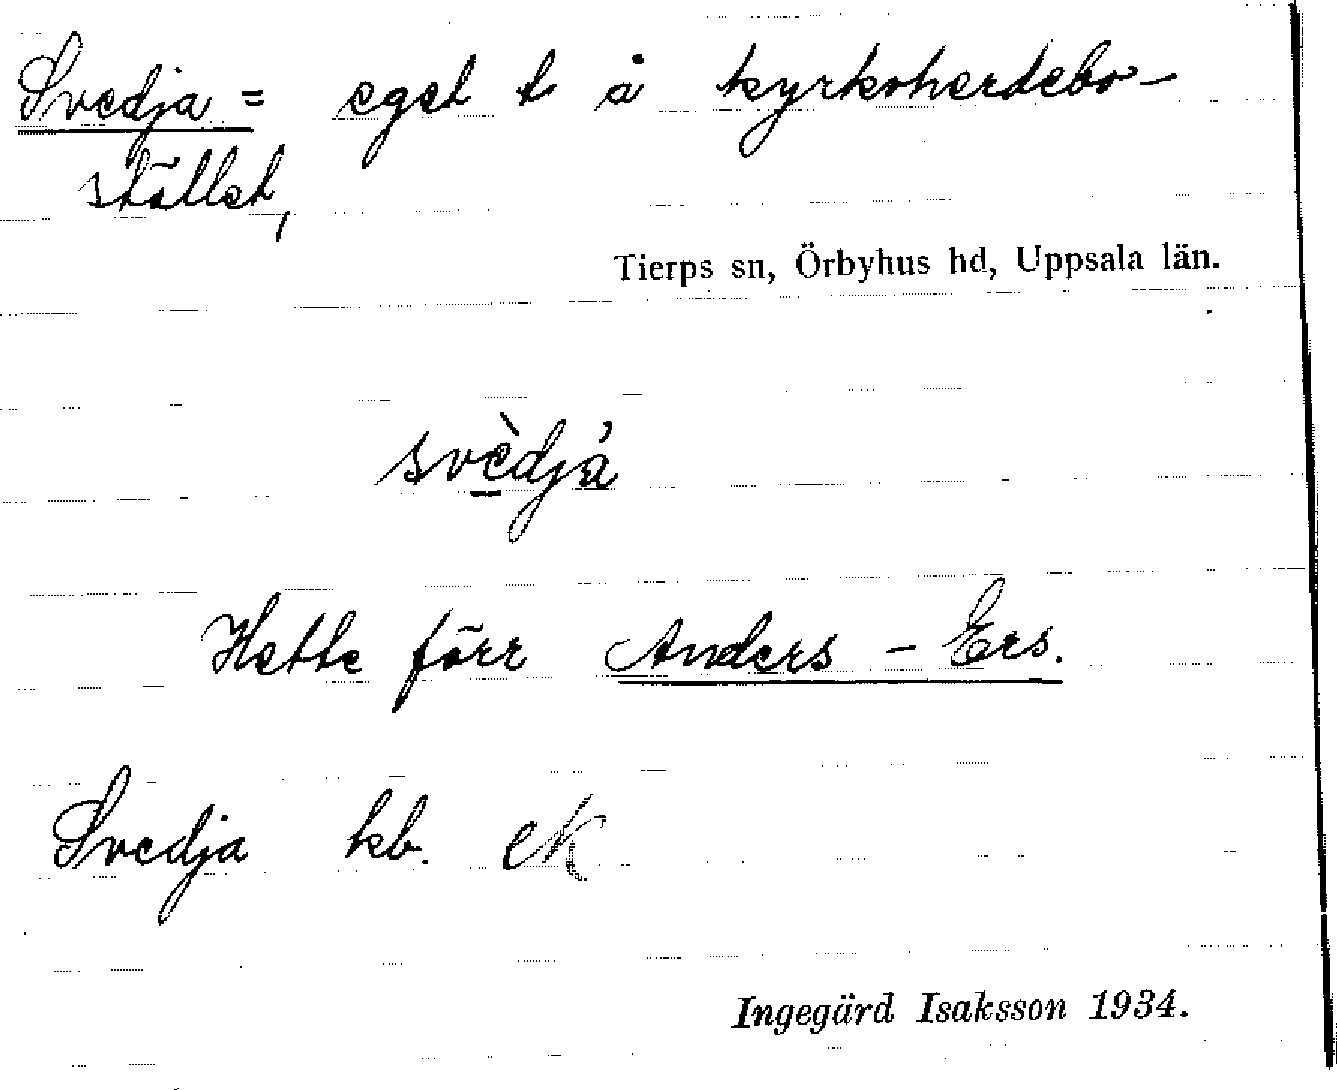 Svedja = eget t å kyrkoherdebo-
stället,
Tierps sn, Örbyhus hd, Uppsala län.
svèdjá
Hette förr Anders - Ers.
Svedja kb. ek
Ingegärd Isaksson 1934.